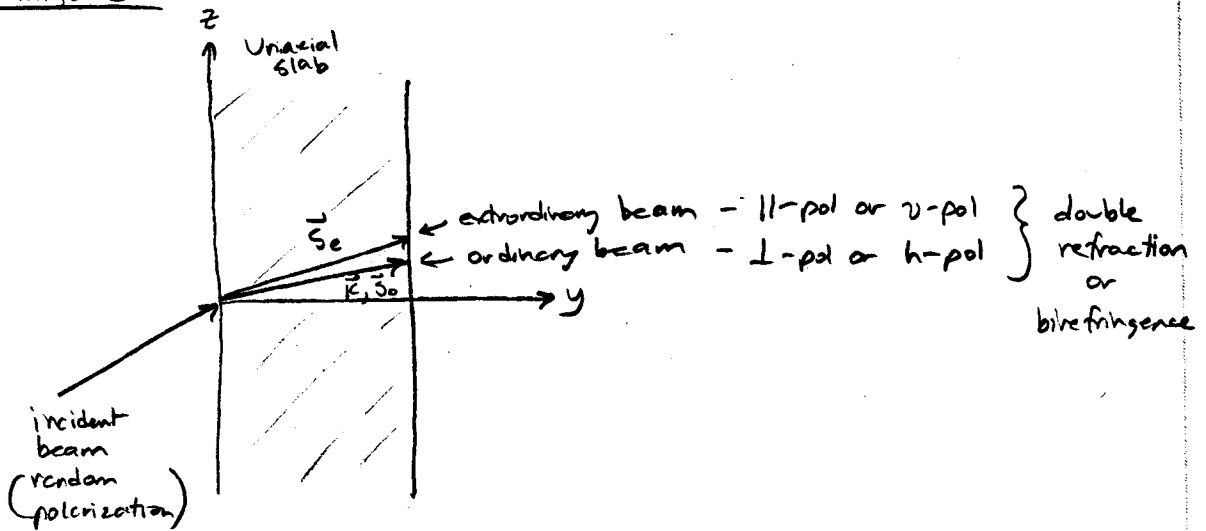 z
Uniaxial
slab
S⃗e
extrordinary beam - ||-pol or v-pol
ordinary beam - ⊥-pol or h-pol
double
refraction
or
birefringence
k⃗, S⃗o
y
incident
beam
(random
polarization)